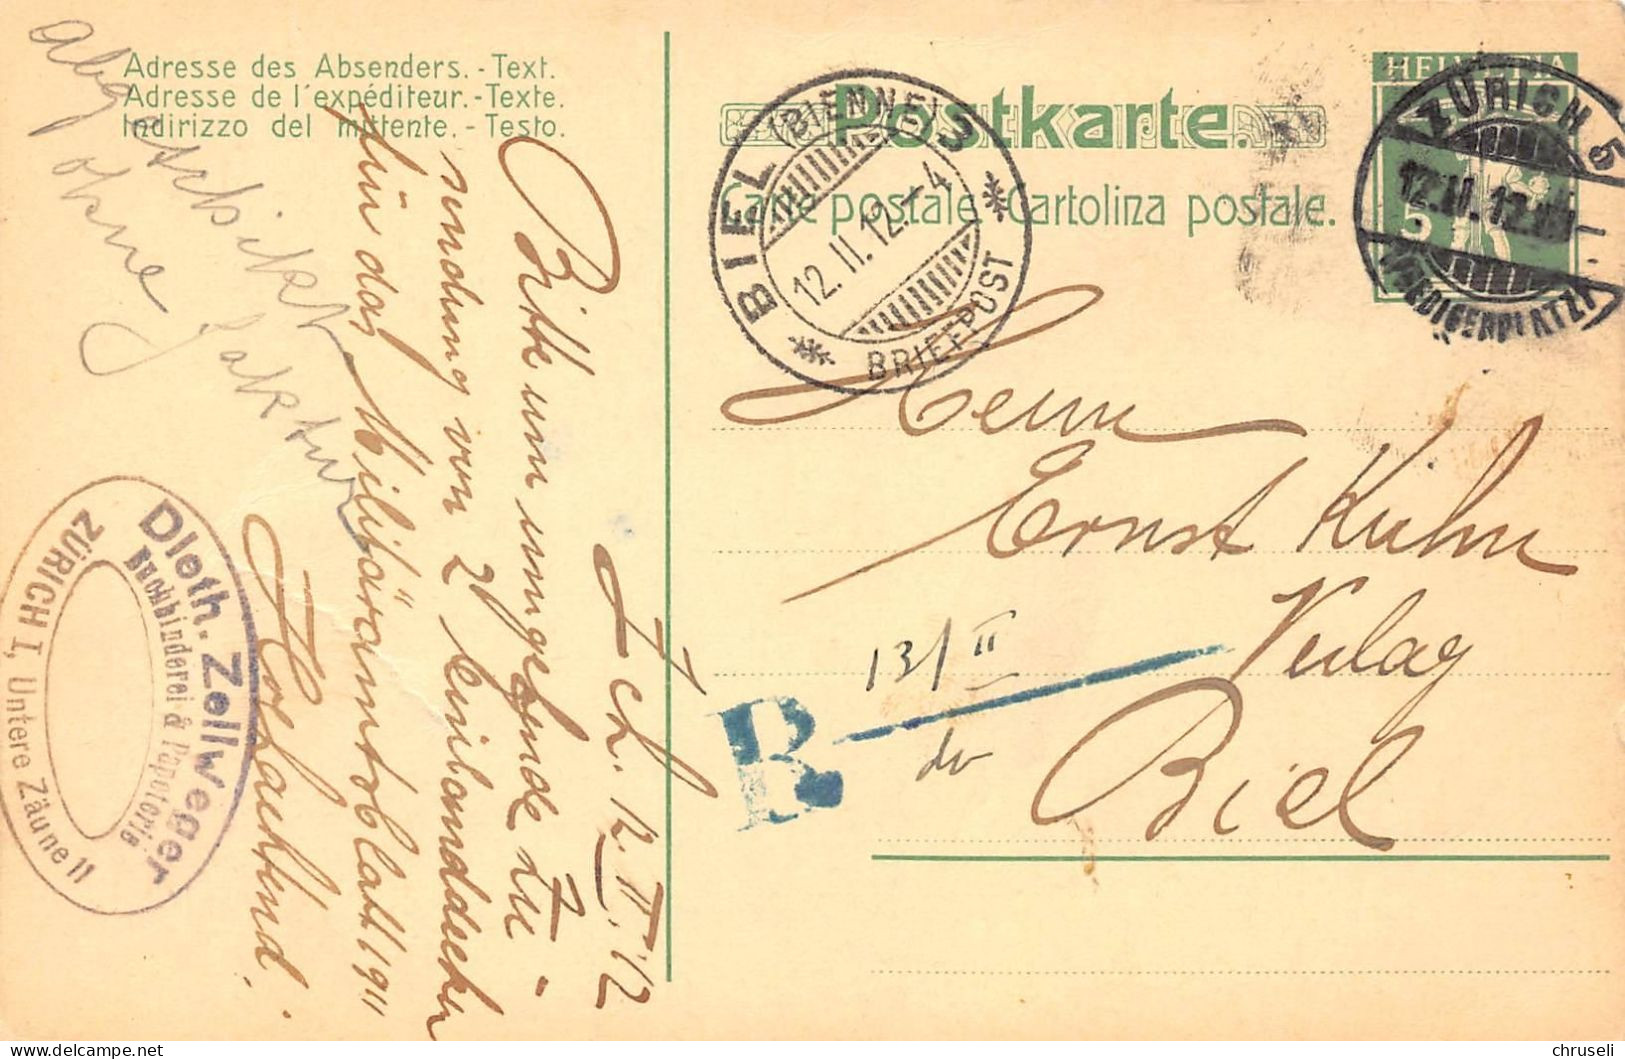 Adresse des Absenders. - Text.
Adresse de l'expéditeur. - Texte.
Indirizzo del mittente. - Testo.
Postkarte.
Carte postale - Cartolina postale.
HELVETIA
5
ZÜRICH 5
12.II.12.
BIEL (BIENNE) 3
12. II. 12. - 4
BRIEFPOST
abgeschickt
ohne Faktur
Zch. 12. II. 12
Bitte um umgehende Zu=
sendung von 2 Leinwanddecken
für das Militäramtsblatt 1911
Hochachtend.
Dieth. Zellweger
Buchbinderei & Papeterie
ZÜRICH I, Untere Zäune 11
Herrn
Ernst Kuhn
Verlag
Biel
13/II
R